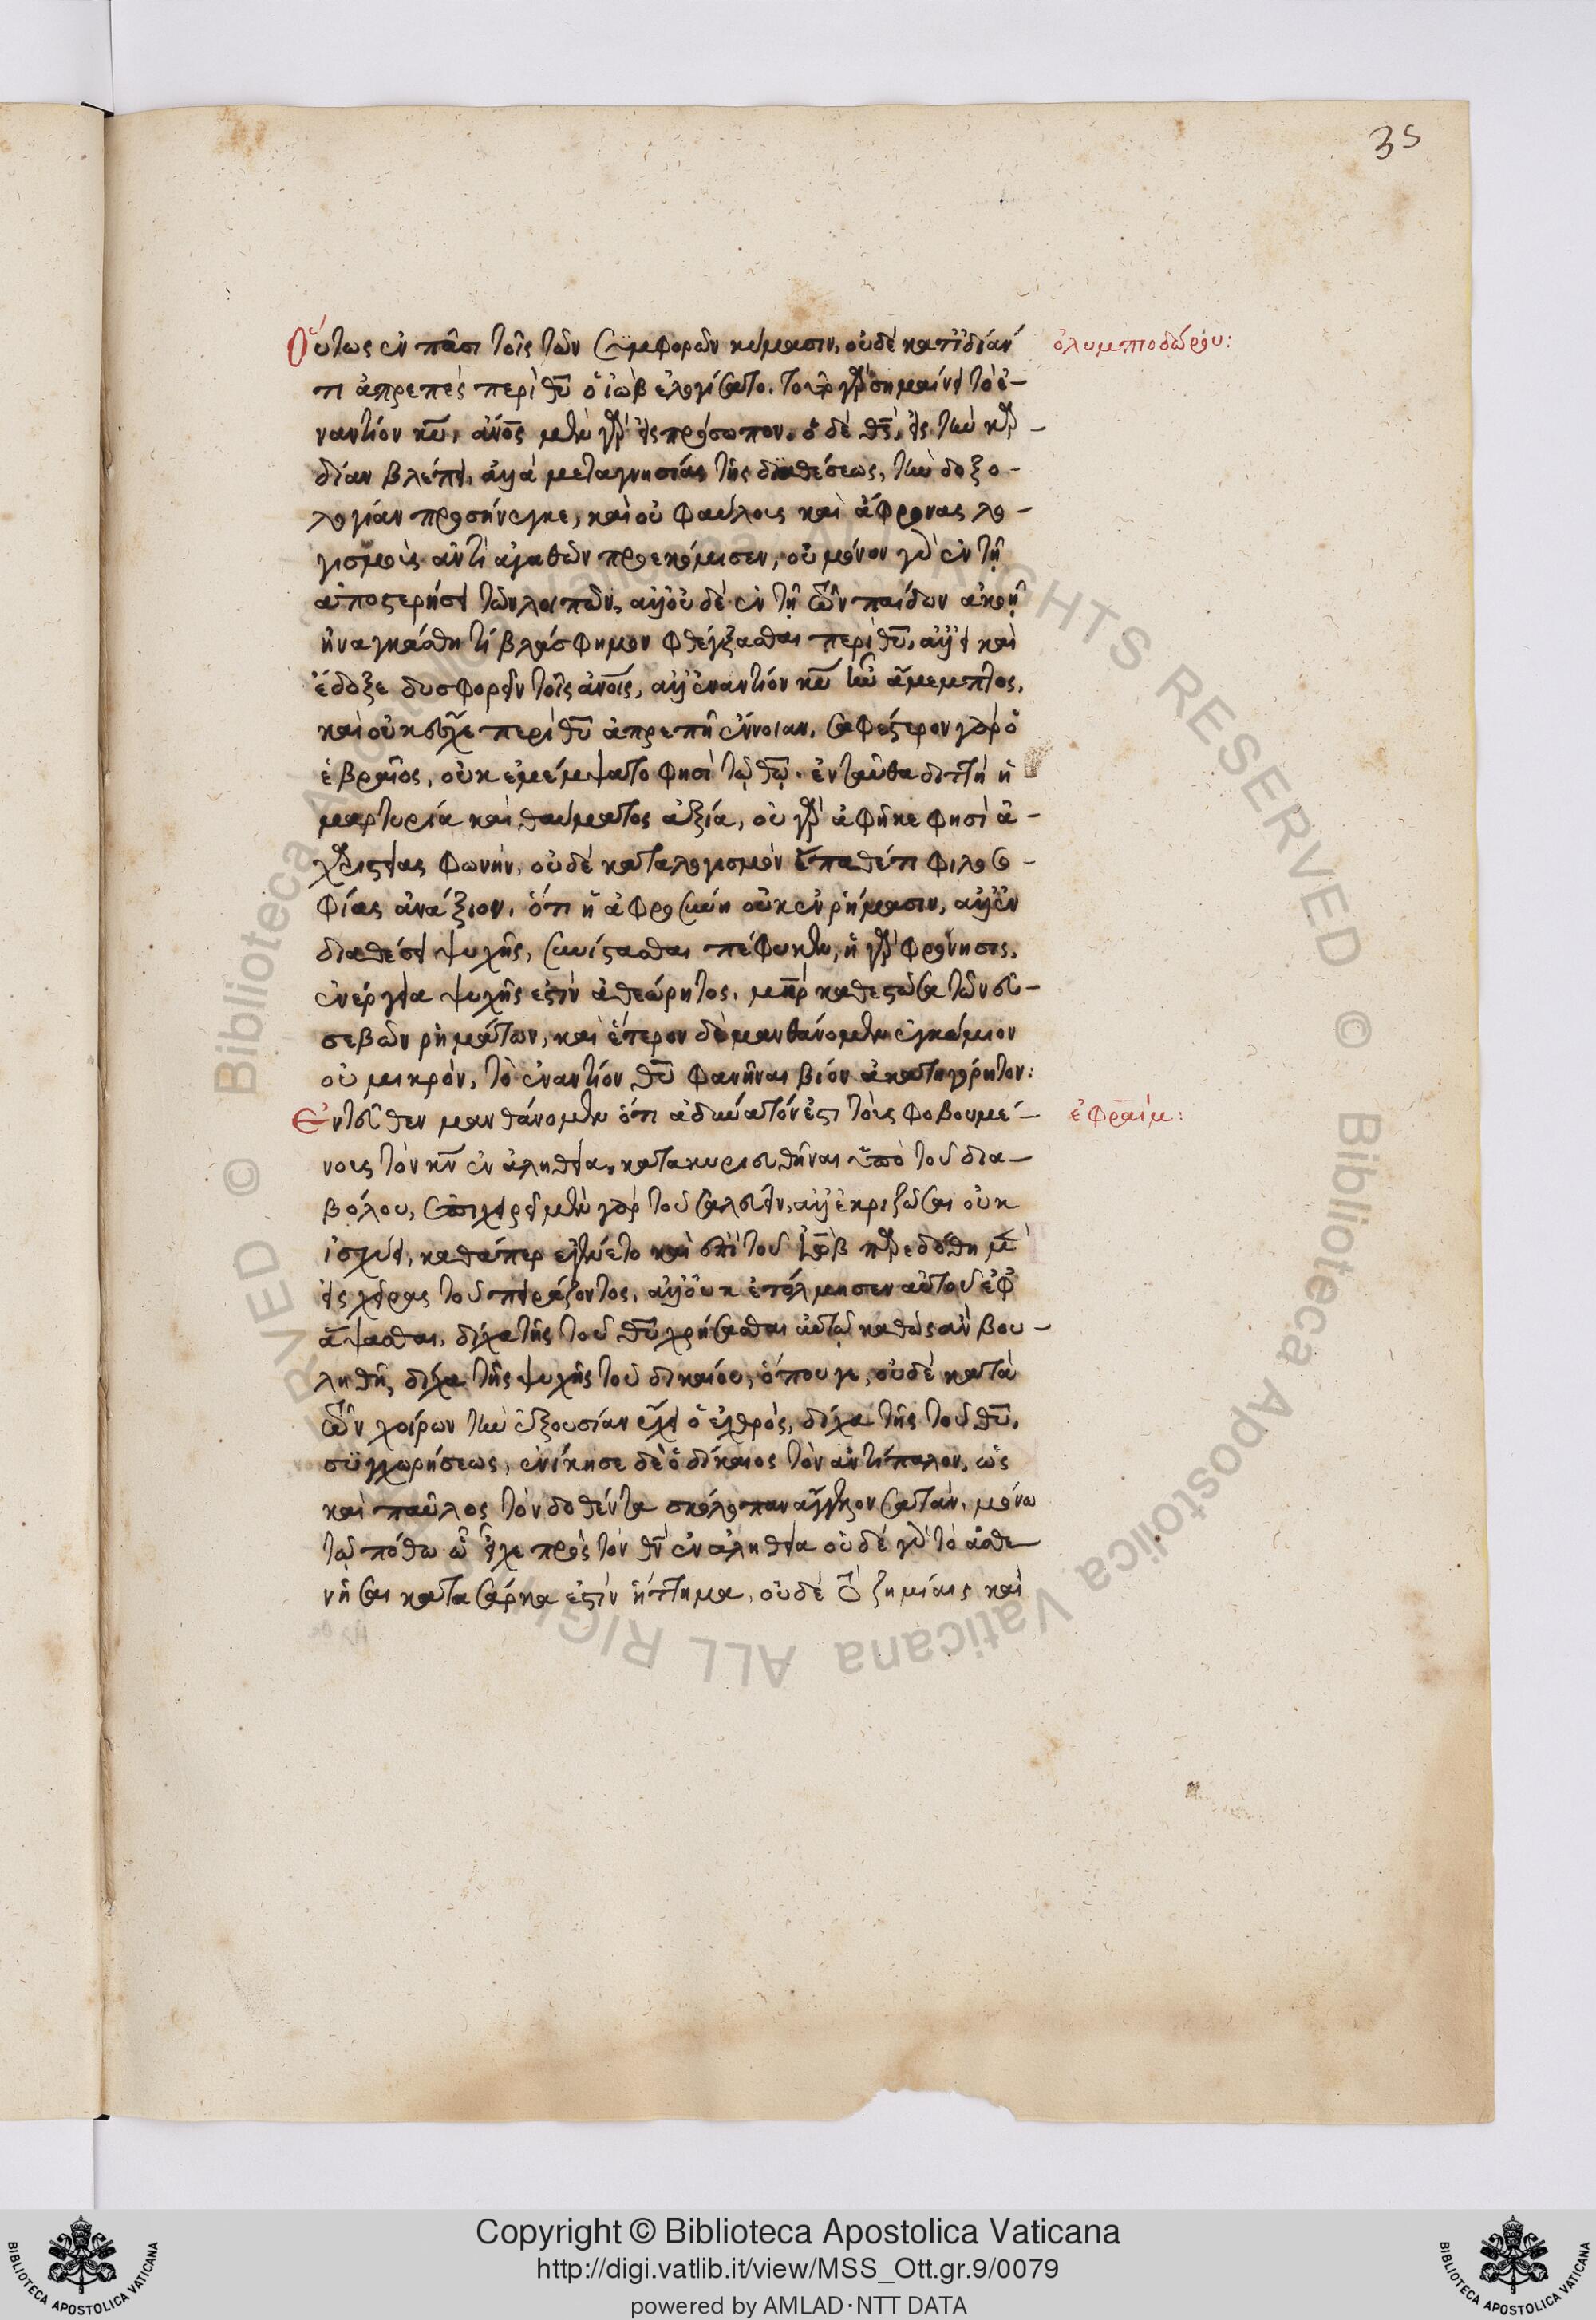 35
Οὕτως ἐν πᾶσι τοῖς τῶν συμφορῶν κύμασιν, οὐδὲ κατιδίαν
ὀλυμποδώρου:
τι ἀπρεπὲς περὶ θυ ὁ ἰὼβ ἐλογίσατο. τοῦτο γὰρ σημαίνει τὸ ἐ-
ναντίον κυ, ἀνος μὲν γὰρ εἰς πρόσωπον, ὁ δὲ θς, εἰς τὴν καρ-
δίαν βλέπει, ἀλλὰ μετα γνησίας τῆς διαθέσεως, τὴν δοξο-
λογίαν προσήνεγκε, καὶ οὐ φαύλους καὶ ἄφρονας λο-
γισμοὺς ἀντὶ ἀγαθῶν προεκόμισεν, οὐ μόνον γὰρ ἐν τῇ
ἀποστερήσει τῶν λοιπῶν, ἀλλ' οὐδὲ ἐν τῇ τῶν παίδων ἀκοῇ
ἠναγκάσθη τί βλάσφημον φθέγξασθαι περὶ θυ, ἀλλ' εἰ καὶ
ἔδοξε δυσφορεῖν τοῖς ἀνοις, ἀλλ' ἐναντίον κυ ἦν ἄμεμπτος,
καὶ οὐκ ἔσχε περὶ θυ ἀπρεπῆ ἔννοιαν. σαφέστερον γὰρ ὁ
ἑβραῖος, οὐκ ἐμέμψατο φησὶ τῷ θω. ἐνταῦθα διττὴ ἡ
μαρτυρία καὶ θαύματος ἀξία, οὐ γὰρ ἀφῆκε φησὶ ἀ-
χαριστίας φωνὴν, οὐδὲ κατα λογισμὸν ἔπαθέ τι φιλοσο-
φίας ἀνάξιον. ὅτι ἡ ἀφροσύνη οὐκ ἐν ῥήμασιν, ἀλλ' ἐν
διαθέσει ψυχῆς, συνίστασθαι πέφυκεν, ἡ γὰρ φρόνησις,
ἐνέργεια ψυχῆς ἐστὶν ἀθεώρητος, μηρ καθεστῶσα τῶν εὐ-
σεβῶν ῥημάτων, καὶ ἕτερον δὲ μανθάνομεν ἐγκώμιον
οὐ μικρὸν, τὸ ἐναντίον θυ φανῆναι βίον ἀκατηγόρητον:
Ἐντεῦθεν μανθάνομεν ὅτι ἀδύνατόν ἐστι τοῖς φοβουμέ-
ἐφραίμ:
νοις τὸν κν ἐν ἀληθεία, κατακυριευθῆναι ὑπὸ τοῦ δια-
βόλου, ἐπιχειρεῖ μὲν γὰρ τοῦ σαλεύειν, ἀλλ' ἐκριζῶσαι οὐκ
ἰσχύει, καθάπερ ἐγένετο καὶ ἐπὶ τοῦ ἰὼβ παρεδόθη μὲν
εἰς χεῖρας τοῦ πειράζοντος, ἀλλ' οὐκ ἐτόλμησεν αὐτοῦ ἐφ
άψασθαι, δίχα τῆς τοῦ θυ χρήσασθαι αὐτῷ καθὼς ἂν βου-
ληθῇ, δίχα τῆς ψυχῆς τοῦ δικαίου, ὅπου γε, οὐδὲ κατὰ
τῶν χοίρων τὴν ἐξουσίαν εἶχει ὁ ἐχθρὸς, δίχα τῆς τοῦ θυ,
συγχωρήσεως, ἐνίκησε δὲ ὁ δίκαιος τὸν ἀντίπαλον, ὡς
καὶ παῦλος τὸν δοθέντα σκόλοπαν ἄγγελον σατὰν, μόνω
τῷ πόθω ᾧ εἶχε πρὸς τὸν θν ἐν ἀληθεία οὐδὲ γὰρ τὸ ἀσθε-
νῆσαι κατα σάρκα ἐστὶν ἥττημα, οὐδὲ τὸ ζημίαις καὶ
Copyright © Biblioteca Apostolica Vaticana
http://digi.vatlib.it/view/MSS_Ott.gr.9/0079
powered by AMLAD·NTT DATA
BIBLIOTECA APOSTOLICA VATICANA
BIBLIOTECA APOSTOLICA VATICANA
© Biblioteca Apostolica Vaticana ALL RIGHTS RESERVED © Biblioteca Apostolica Vaticana ALL RIGHTS RESERVED